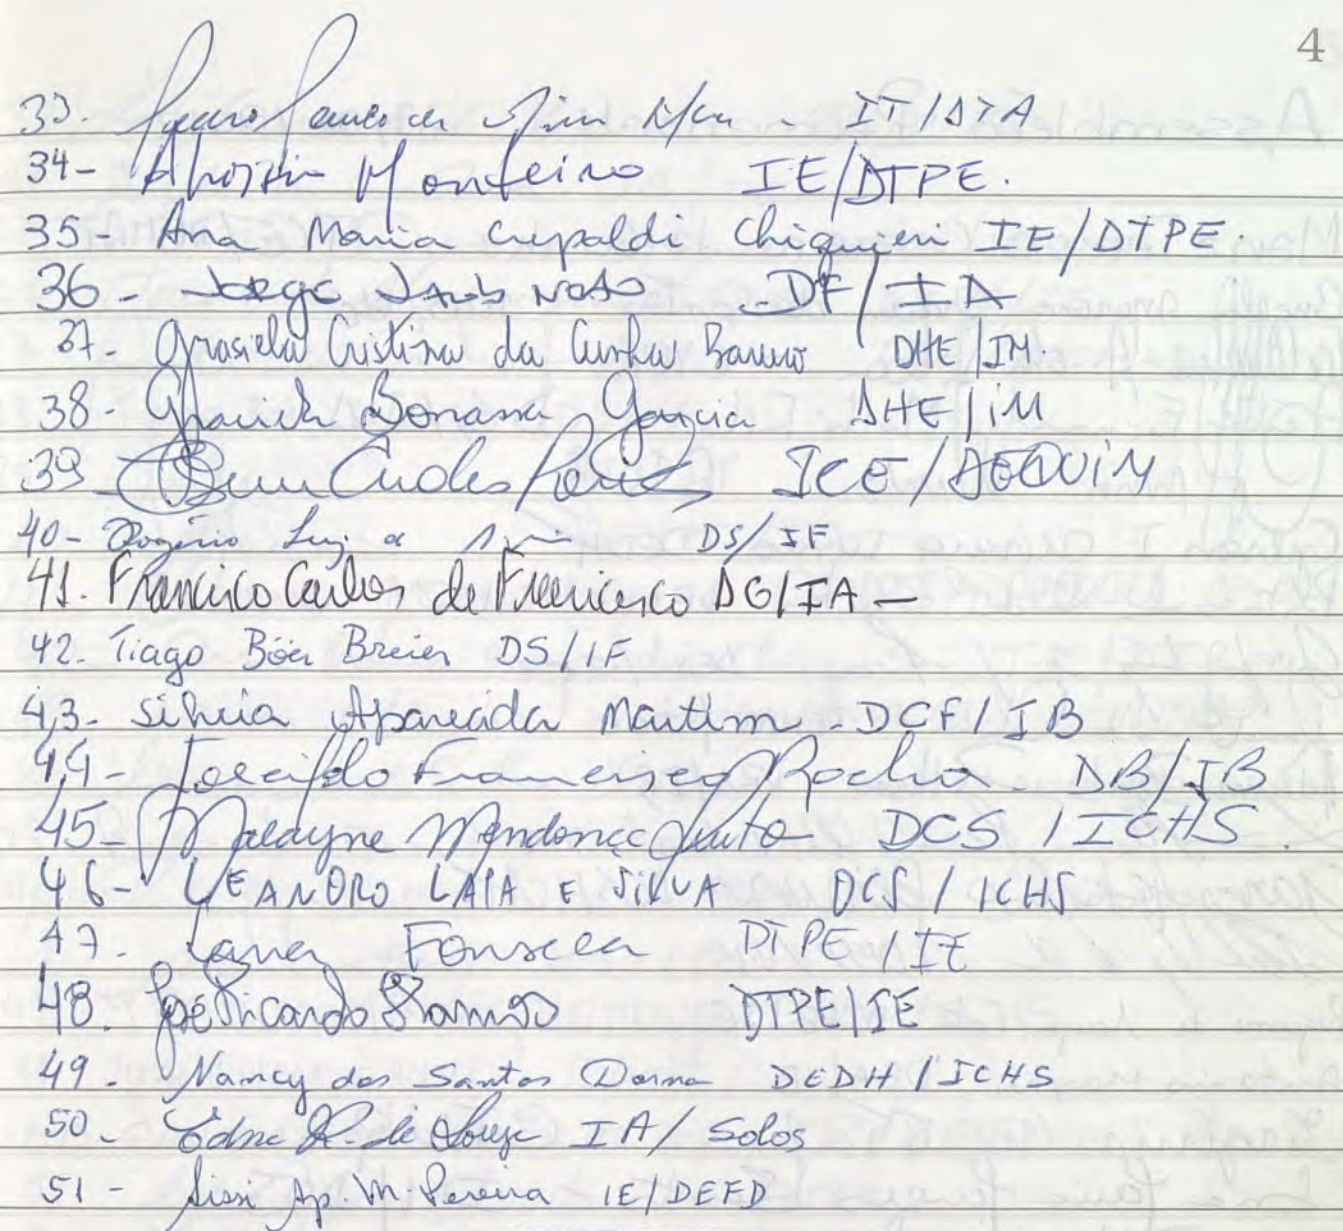 4
33. IT/DTA
34- Monteiro IE/DTPE.
35- Ana Maria Crepaldi Chiquieri IE/DTPE.
36- Jorge Jacob Neto - DF/IA
37- Grasiela Cristina da Cunha Baruco DHE/IM.
38- Graciela Bonassa Garcia DHE/IM
39 ICE/DEQUIM
40- Rogério Luiz DS/IF
41. Francisco Carlos de Francisco DG/IA -
42. Tiago Böer Breier DS/IF
43- Silvia Aparecida Martim - DCF/IB
44- Francisco Rocha. DB/IB
45- Mendonça DCS / ICHS.
46- LEANDRO LAIA E SILVA DCS / ICHS
47. Fonseca DTPE/IE
48. José Ricardo Ramiro DTPE/IE
49- Nancy dos Santos Dorna DEDH / ICHS
50- R. de Souza IA/ Solos
51- Ap. M. Pereira IE/DEFD